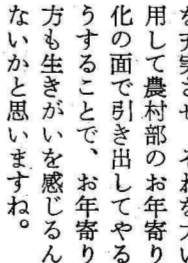 用して農村部のお年寄り
化の面で引き出してやる
うすることで、お年寄り
方も生きがいを感じるん
ないかと思いますね。